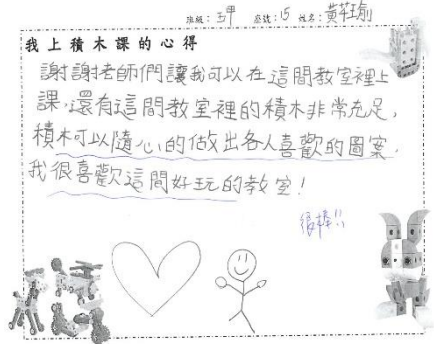 班級：五甲 座號：15 姓名：黃莛瑜
我上積木課的心得
謝謝老師們讓我可以在這間教室裡上
課，還有這間教室裡的積木非常充足，
積木可以隨心的做出各人喜歡的圖案，
我很喜歡這間好玩的教室！
很棒!!